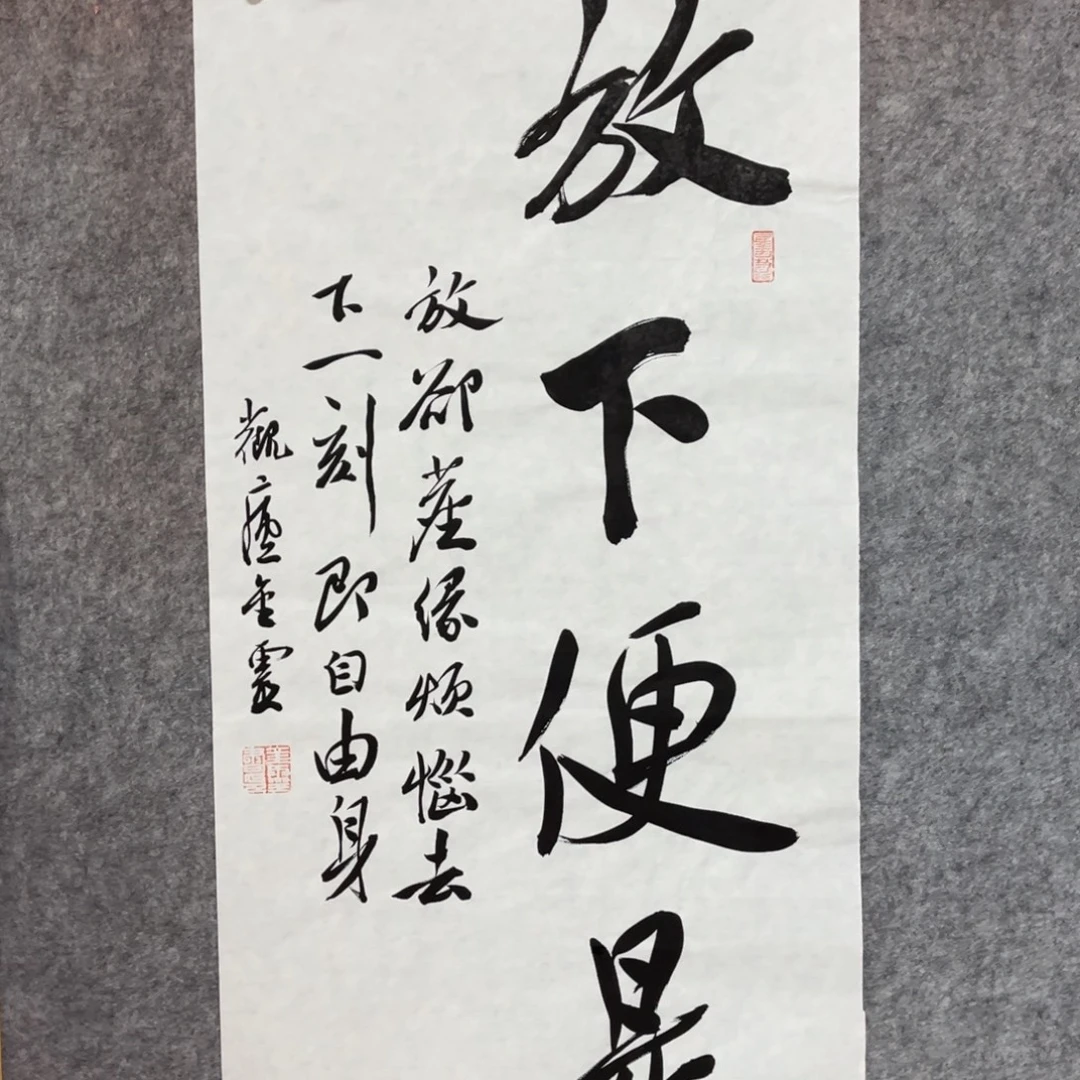 放下便是
放卻塵緣煩惱去
下一刻即自由身
觀廬金霞